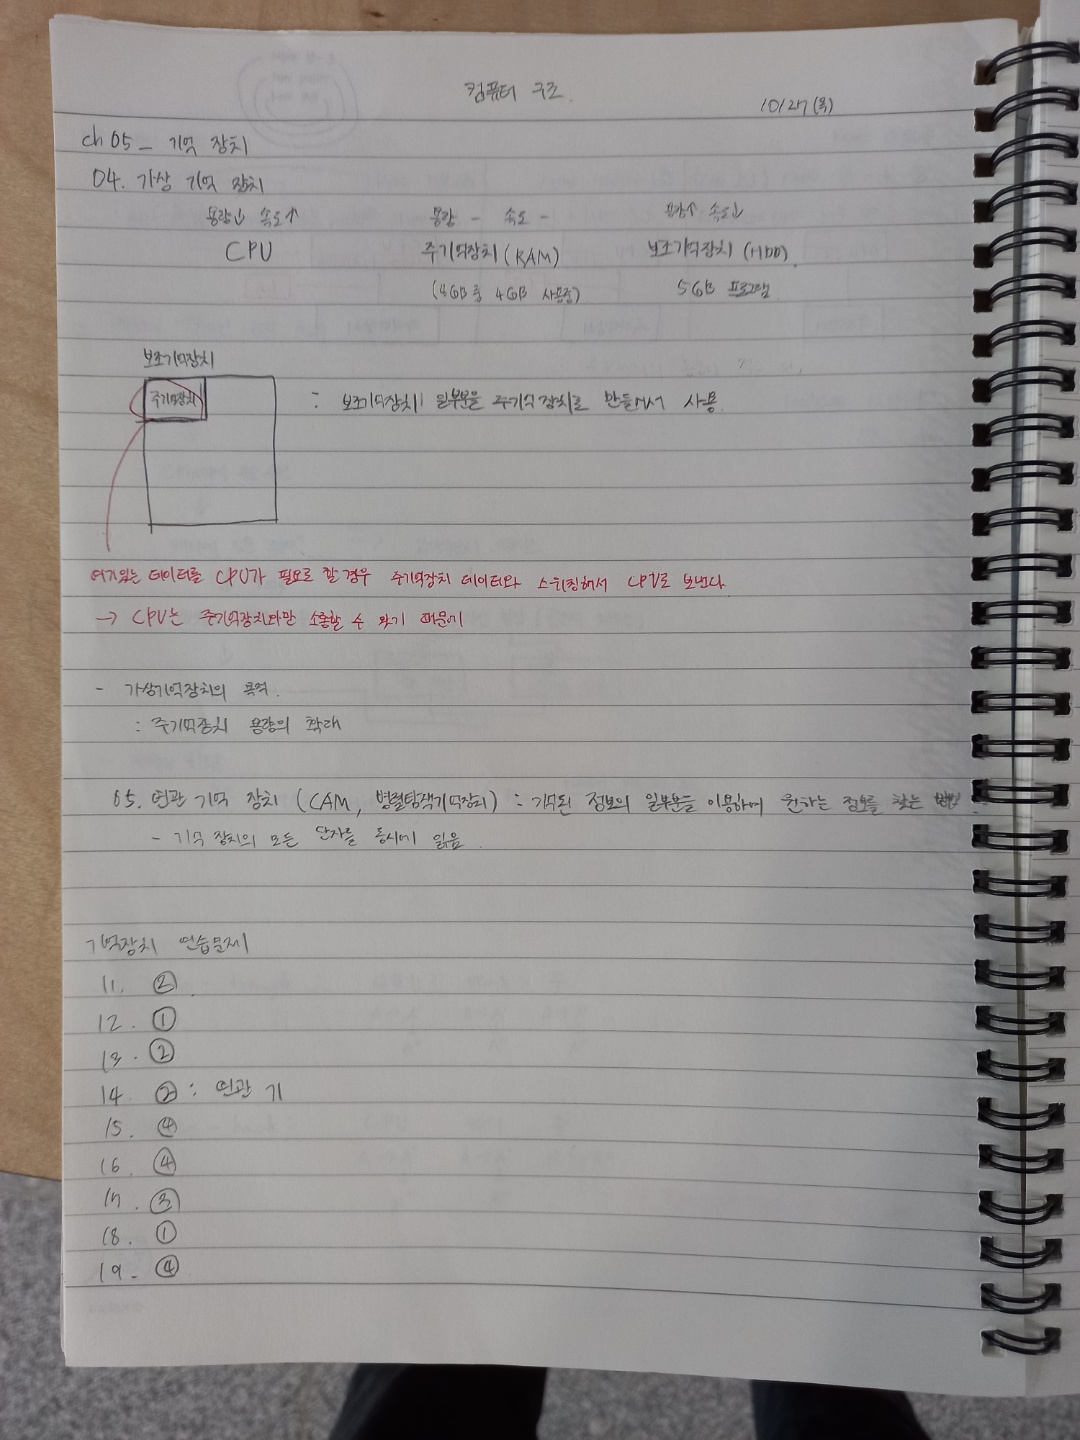 컴퓨터 구조.
10/27(목)
ch 05_ 기억 장치
04. 가상 기억 장치
용량↓ 속도↑ 용량 - 속도 - 용량↑ 속도↓
CPU 주기억장치(RAM) 보조기억장치(HDD)
(8GB 중 4GB 사용중) 5GB 프로그램
보조기억장치
주기억장치
: 보조기억장치 일부분을 주기억장치로 만들어서 사용.
여기있는 데이터를 CPU가 필요로 할 경우 주기억장치 데이터와 스위칭해서 CPU로 보낸다
→ CPU는 주기억장치와만 소통할 수 있기 때문에
- 가상기억장치의 목적.
: 주기억장치 용량의 확대
05. 연관 기억 장치 (CAM, 병렬탐색기억장치) : 기억된 정보의 일부분을 이용하여 원하는 정보를 찾는 방법
- 기억 장치의 모든 단자를 동시에 읽음.
기억장치 연습문제
11. ②
12. ①
13. ②
14. ② : 연관 기
15. ④
16. ④
17. ③
18. ①
19. ④